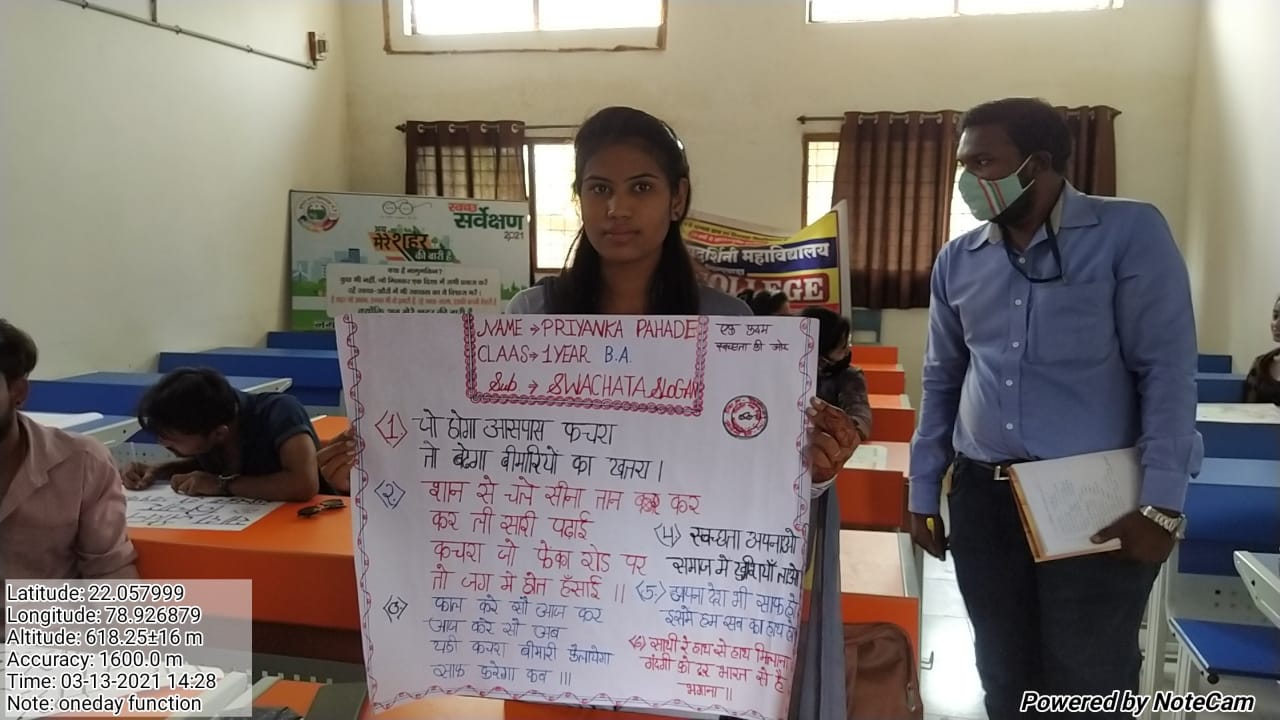 स्वच्छ
सर्वेक्षण
2021
अब
मेरे शहर
की बारी है
क्या है नामुमकिन?
दर्शिनी महाविद्यालय
COLLEGE
NAME → PRIYANKA PAHADE
CLAAS → 1 YEAR B.A.
Sub. → SWACHATA SLOGAN
एक कदम
स्वच्छता की ओर
(1) जो होगा आसपास कचरा
तो बढेगा बीमारियो का खतरा।
2. शान से चले सीना तान कर कर
कर ली सारी पढ़ाई
कचरा जो फेका रोड पर
तो जग मे होत हँसाई ||
(3) काल करे सो आज कर
आज करे सो अब
यही कचरा बीमारी फैलायेगा
साफ करेगा कब |||
(4) स्वच्छता अपनाओ
समाज मे खुशियाँ लाओ
(5) अपना देश भी साफ हो
इसमे हम सब का हाथ हो
(6) साथी रे हाथ से हाथ मिलाना
गंदगी को दूर भारत से है
भगाना ||
Latitude: 22.057999
Longitude: 78.926879
Altitude: 618.25±16 m
Accuracy: 1600.0 m
Time: 03-13-2021 14:28
Note: oneday function
Powered by NoteCam